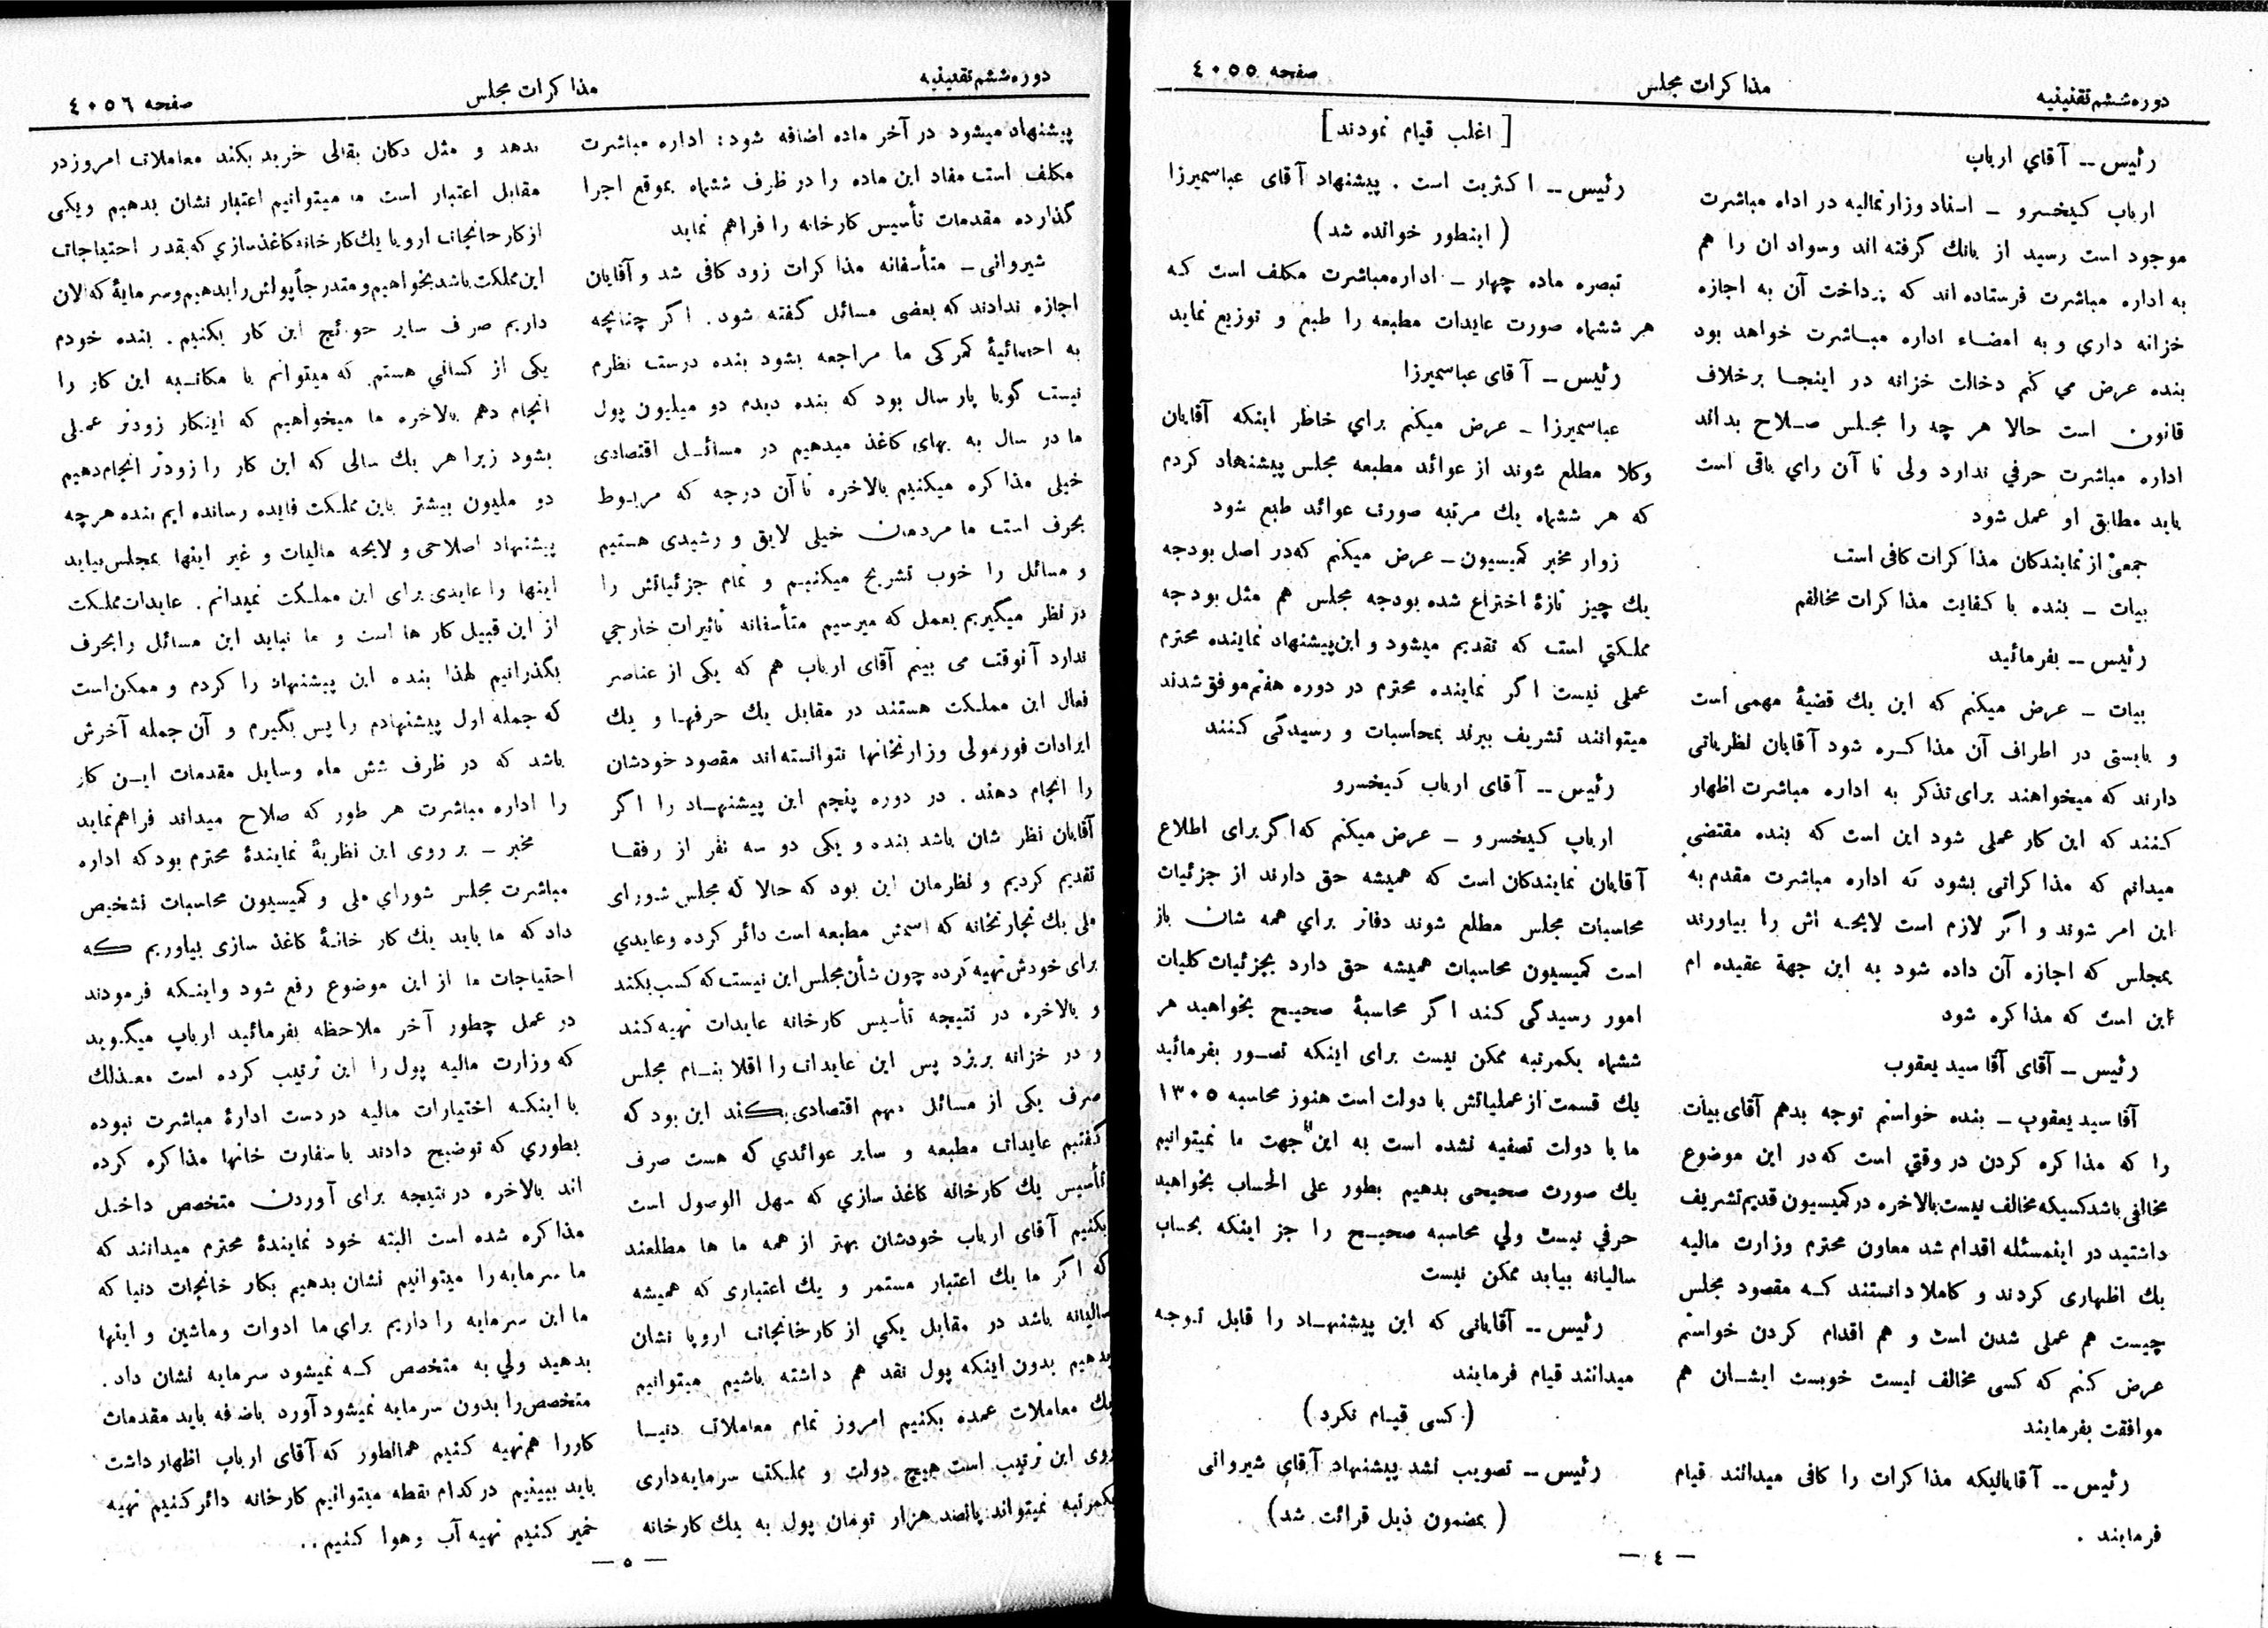 دوره ششم تقنینیه
مذاکرات مجلس
صفحه ٤٠٥٥
رئیس ــ آقای ارباب
ارباب کیخسرو ــ اسناد وزارتمالیه در اداه مباشرت
موجود است رسید از بانك گرفته اند وسواد ان را هم
به اداره مباشرت فرستاده اند که پرداخت آن به اجازه
خزانه داری و به امضاء اداره مباشرت خواهد بود
بنده عرض می کنم دخالت خزانه در اینجا برخلاف
قانون است حالا هر چه را مجلس صلاح بداند
اداره مباشرت حرفي ندارد ولی تا آن رای باقی است
باید مطابق او عمل شود
جمعی از نمایندکان مذاکرات کافی است
بیات ــ بنده با کفایت مذاکرات مخالفم
رئیس ــ بفرمائید
بیات ــ عرض میکنم که این یك قضیهٔ مهمی است
و بایستی در اطراف آن مذاکره شود آقایان نظریاتی
دارند که میخواهند برای تذکر به اداره مباشرت اظهار
کنند که این کار عملی شود این است که بنده مقتضی
میدانم که مذاکراتی بشود که اداره مباشرت مقدم به
این امر شوند و اگر لازم است لایحه اش را بیاورند
بمجلس که اجازه آن داده شود به این جهة عقیده ام
این است که مذاکره شود
رئیس ــ آقای آقا سید یعقوب
آقا سید یعقوب ــ بنده خواستم توجه بدهم آقای بیات
را که مذاکره کردن در وقتي است که در این موضوع
مخالفی باشد کسیکه مخالف نیست بالاخره در کمیسیون قدیم تشریف
داشتید در اینمسئله اقدام شد معاون محترم وزارت مالیه
یك اظهاری کردند و کاملا دانستند که مقصود مجلس
چیست هم عملی شدن است و هم اقدام کردن خواستم
عرض کنم که کسی مخالف نیست خوبست ایشان هم
موافقت بفرمایند
رئیس ــ آقایانیکه مذاکرات را کافی میدانند قیام
فرمایند .
[ اغلب قیام نمودند ]
رئیس ــ اکثریت است . پیشنهاد آقای عباسمیرزا
( اینطور خوانده شد )
تبصره ماده چهار ــ اداره مباشرت مکلف است که
هر ششماه صورت عایدات مطبعه را طبع و توزیع نماید
رئیس ــ آقای عباسمیرزا
عباسمیرزا ــ عرض میکنم برای خاطر اینکه آقایان
وکلا مطلع شوند از عوائد مطبعه مجلس پیشنهاد کردم
که هر ششماه یك مرتبه صورت عوائد طبع شود
زوار مخبر کمیسیون ــ عرض میکنم که در اصل بودجه
یك چیز تازهٔ اختراع شده بودجه مجلس هم مثل بودجه
مملکتي است که تقدیم میشود و این پیشنهاد نماینده محترم
عملی نیست اگر نماینده محترم در دوره هفتم موفق شدند
میتوانند تشریف ببرند بمحاسبات و رسیدگی کنند
رئیس ــ آقای ارباب کیخسرو
ارباب کیخسرو ــ عرض میکنم که اگر برای اطلاع
آقایان نمایندکان است که همیشه حق دارند از جزئیات
محاسبات مجلس مطلع شوند دفاتر برای همه شان باز
است کمیسیون محاسبات همیشه حق دارد بجزئیات کلیات
امور رسیدگی کند اگر محاسبهٔ صحیح بخواهید هر
ششماه یکمرتبه ممکن نیست برای اینکه تصور بفرمائید
یك قسمت از عملیاتش با دولت است هنوز محاسبه ١٣٠٥
ما با دولت تصفیه نشده است به این جهت ما نمیتوانیم
یك صورت صحیحی بدهیم بطور علی الحساب بخواهید
حرفي نیست ولي محاسبه صحیح را جز اینکه بحساب
سالیانه بیاید ممکن نیست
رئیس ــ آقایانی که این پیشنهاد را قابل توجه
میدانند قیام فرمایند
( کسی قیام نکرد )
رئیس ــ تصویب نشد پیشنهاد آقای شیروانی
( بمضمون ذیل قرائت شد )
— ٤ —
دوره ششم تقنینیه
مذاکرات مجلس
صفحه ٤٠٥٦
پیشنهاد میشود در آخر ماده اضافه شود: اداره مباشرت
مکلف است مفاد این ماده را در ظرف ششماه بموقع اجرا
گذارده مقدمات تأسیس کارخانه را فراهم نماید
شیروانی ــ متأسفانه مذاکرات زود کافی شد و آقایان
اجازه ندادند که بعضی مسائل گفته شود . اگر چنانچه
به احصائیهٔ گمرکی ما مراجعه بشود بنده درست نظرم
نیست گویا پارسال بود که بنده دیدم دو میلیون پول
ما در سال به بهای کاغذ میدهیم در مسائل اقتصادی
خیلی مذاکره میکنیم بالاخره تا آن درجه که مربوط
بحرف است ما مردمان خیلی لایق و رشیدی هستیم
و مسائل را خوب تشریح میکنیم و تمام جزئیاتش را
در نظر میگیریم بعمل که میرسیم متأسفانه تاثیرات خارجي
ندارد آنوقت می بینم آقای ارباب هم که یکی از عناصر
فعال این مملکت هستند در مقابل یك حرفها و یك
ایرادات فورمولی وزارتخانها نتوانسته اند مقصود خودشان
را انجام دهند . در دوره پنجم این پیشنهاد را اگر
آقایان نظر شان باشد بنده و یکی دو سه نفر از رفقا
تقدیم کردیم و نظرمان این بود که حالا که مجلس شورای
ملی یك تجارتخانه که اسمش مطبعه است دائر کرده وعایدي
برای خودش تهیه کرده چون شأن مجلس این نیست که کسب بکند
و بالاخره در نتیجه تأسیس کارخانه عایدات تهیه کند
و در خزانه بریزد پس این عایدات را اقلا بنام مجلس
صرف یکی از مسائل مهم اقتصادی بکند این بود که
گفتیم عایدات مطبعه و سایر عوائدی که هست صرف
تأسیس یك کارخانه کاغذ سازي که سهل الوصول است
بکنیم آقای ارباب خودشان بهتر از همه ما ها مطلعند
که اگر ما یك اعتبار مستمر و یك اعتباری که همیشه
سالیانه باشد در مقابل یکي از کارخانجات اروپا نشان
بدهیم بدون اینکه پول نقد هم داشته باشیم میتوانیم
یك معاملات عمده بکنیم امروز تمام معاملات دنیا
روی این ترتیب است هیچ دولت و مملکت سرمایه داری
یکمرتبه نمیتواند پانصد هزار تومان پول به یك کارخانه
بدهد و مثل دکان بقالی خرید بکند معاملات امروز در
مقابل اعتبار است ما میتوانیم اعتبار نشان بدهیم ویکی
از کارخانجات اروپا یك کارخانه کاغذ سازي که بقدر احتیاجات
این مملکت باشد بخواهیم و متدرجاً پولش را بدهیم و سرمایهٔ که الان
داریم صرف سایر حوائج این کار بکنیم . بنده خودم
یکی از کساني هستم که میتوانم با مکاتبه این کار را
انجام دهم بالاخره ما میخواهیم که اینکار زودتر عملی
بشود زیرا هر یك سالی که این کار را زودتر انجام دهیم
دو ملیون بیشتر باین مملکت فایده رسانده ایم بنده هرچه
پیشنهاد اصلاحی و لایحه مالیات و غیر اینها بمجلس بیاید
اینها را عایدی برای این مملکت نمیدانم . عایدات مملکت
از این قبیل کار ها است و ما نباید این مسائل را بحرف
بگذرانیم لهذا بنده این پیشنهاد را کردم و ممکن است
که جمله اول پیشنهادم را پس بگیرم و آن جمله آخرش
باشد که در ظرف شش ماه وسایل مقدمات این کار
را اداره مباشرت هر طور که صلاح میداند فراهم نماید
مخبر ــ بر روی این نظریهٔ نمایندهٔ محترم بود که اداره
مباشرت مجلس شورای ملی و کمیسیون محاسبات تشخیص
داد که ما باید یك کار خانهٔ کاغذ سازی بیاوریم که
احتیاجات ما از این موضوع رفع شود واینکه فرمودند
در عمل چطور آخر ملاحظه بفرمائید ارباب میگوید
که وزارت مالیه پول را این ترتیب کرده است معذلك
با اینکه اختیارات مالیه در دست ادارهٔ مباشرت نبوده
بطوري که توضیح دادند با سفارت خانها مذاکره کرده
اند بالاخره در نتیجه برای آوردن متخصص داخل
مذاکره شده است البته خود نمایندهٔ محترم میدانند که
ما سرمایه را میتوانیم نشان بدهیم بکار خانجات دنیا که
ما این سرمایه را داریم برای ما ادوات وماشین و اینها
بدهید ولي به متخصص که نمیشود سرمایه نشان داد .
متخصص را بدون سرمایه نمیشود آورد باضافه باید مقدمات
کار را هم تهیه کنیم همانطور که آقای ارباب اظهار داشت
باید ببینیم در کدام نقطه میتوانیم کارخانه دائر کنیم تهیه
خمیر کنیم تهیه آب و هوا کنیم..
— ٥ —